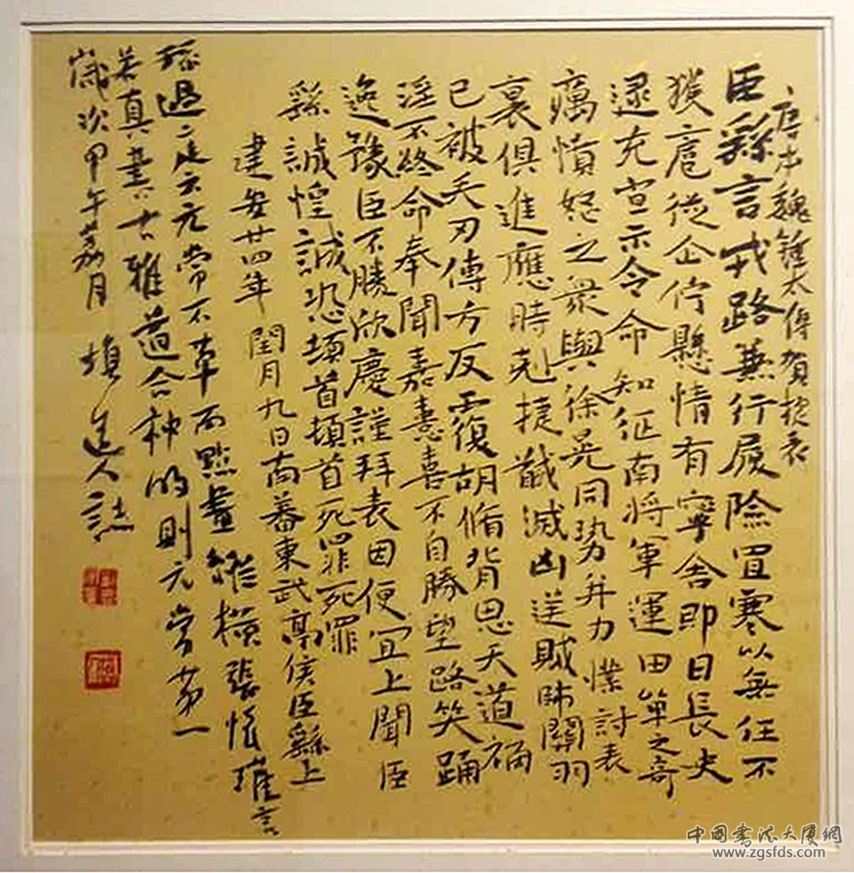 唐本魏鍾太傅賀捷表
臣繇言戎路兼行履險冒寒以無任不
獲扈從企佇懸情有寧舍即日長史
逯充宣示令命知征南將軍運田單之奇
癘憤怒之眾與徐晃同勢并力撲討表
裏俱進應時剋捷馘滅凶逆賊帥關羽
已被矢刃傅方反覆胡脩背恩天道禍
淫不終命奉聞嘉憙喜不自勝望路笑踊
逸豫臣不勝欣慶謹拜表因便宜上聞臣
繇誠惶誠恐頓首頓首死罪死罪
建安廿四年閏月九日南蕃東武亭侯臣繇上
孫過庭云元常不草而點畫縱橫張懷瓘言
若真書古雅道合神明則元常第一
歲次甲午荔月 人誌
中国书法大厦網
www.zgsfds.com